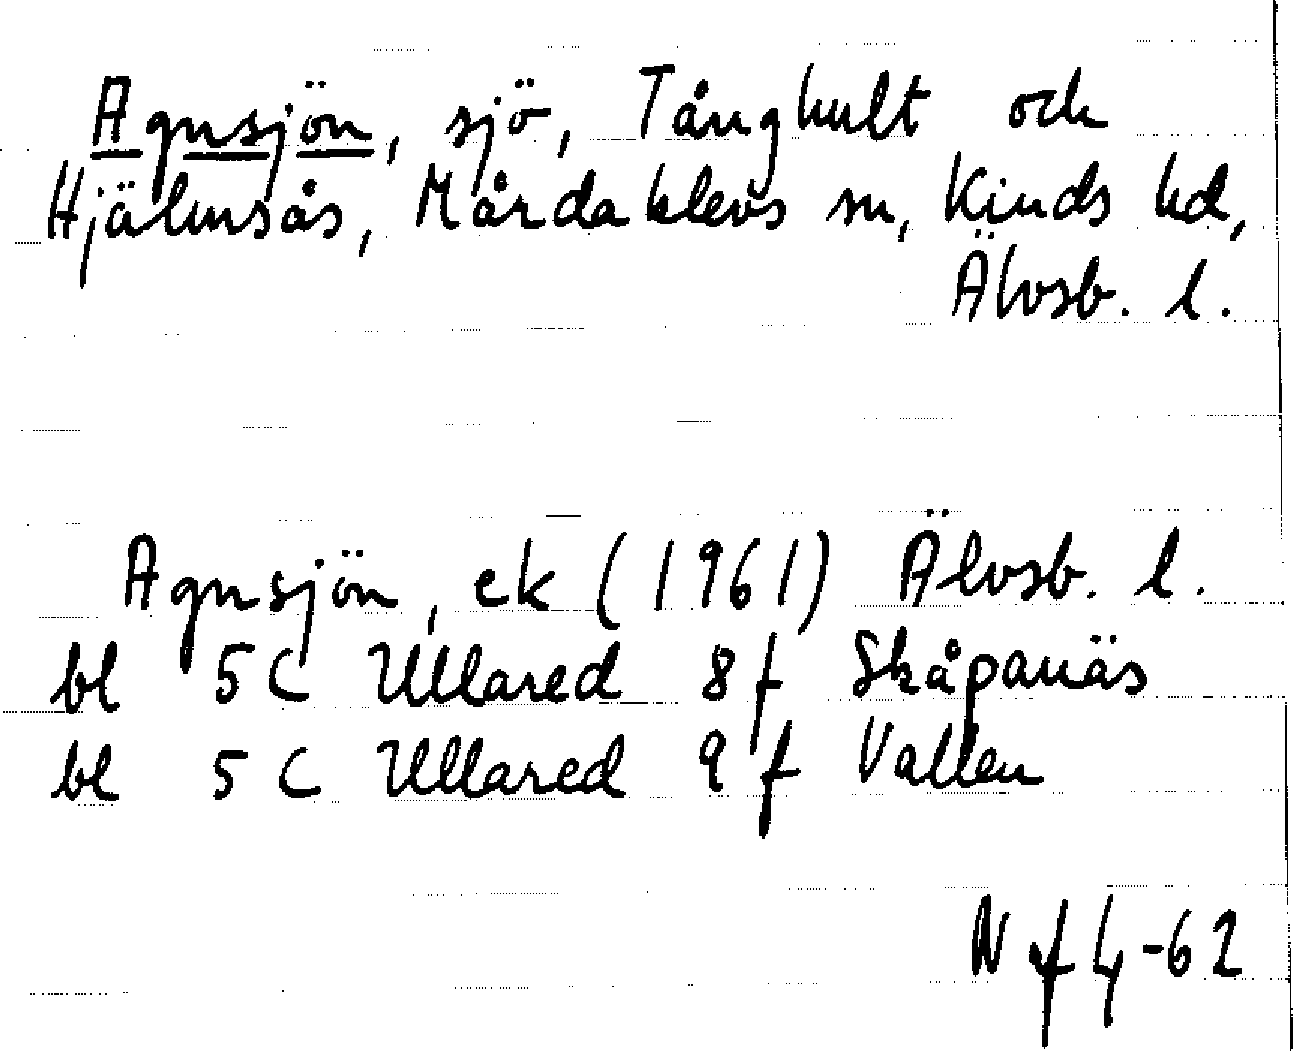 Agnsjön, sjö, Tånghult och
Hjälmsås, Mårdaklevs sn, Kinds hd,
Älvsb. l.
Agnsjön, ek (1961) Älvsb. l.
bl 5C Ullared 8f Skåpanäs
bl 5C Ullared 9f Vallen
Nf 4-62